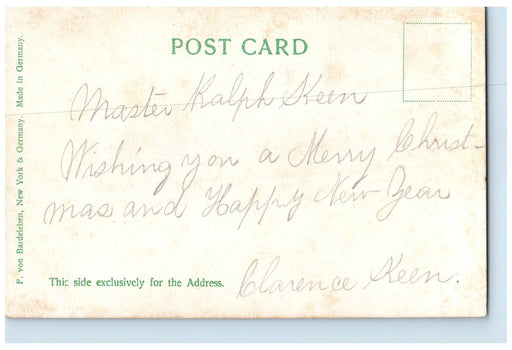 POST CARD
Master Ralph Keen
Wishing you a Merry Christ-
mas and Happy New Year
Clarence Keen.
This side exclusively for the Address.
F. von Bardeleben, New York & Germany. Made in Germany.